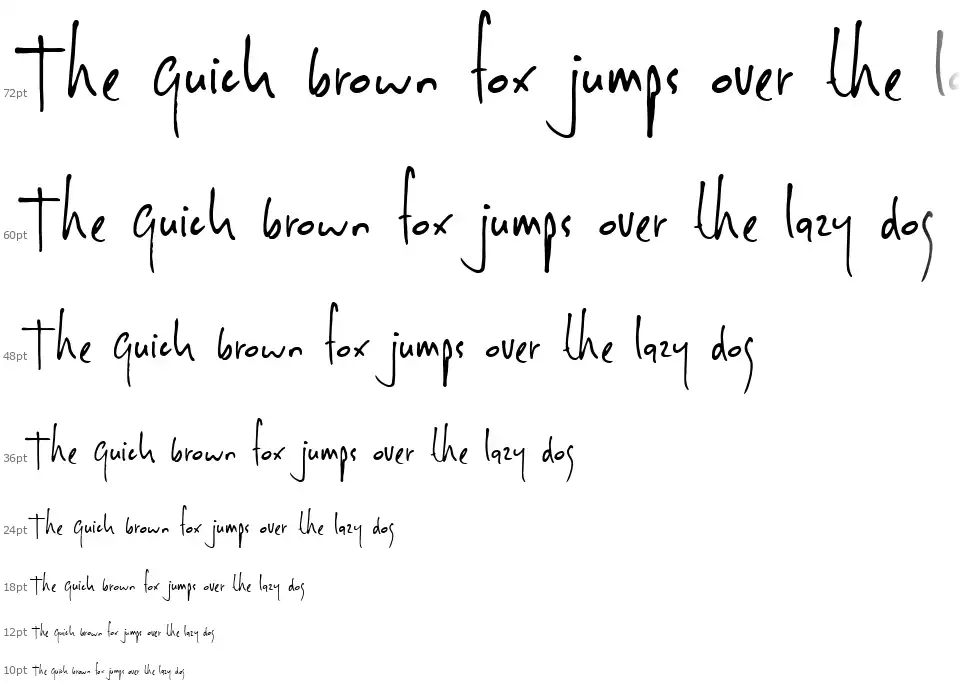 72pt The quick brown fox jumps over the la
60pt The quick brown fox jumps over the lazy dog
48pt The quick brown fox jumps over the lazy dog
36pt The quick brown fox jumps over the lazy dog
24pt The quick brown fox jumps over the lazy dog
18pt The quick brown fox jumps over the lazy dog
12pt The quick brown fox jumps over the lazy dog
10pt The quick brown fox jumps over the lazy dog